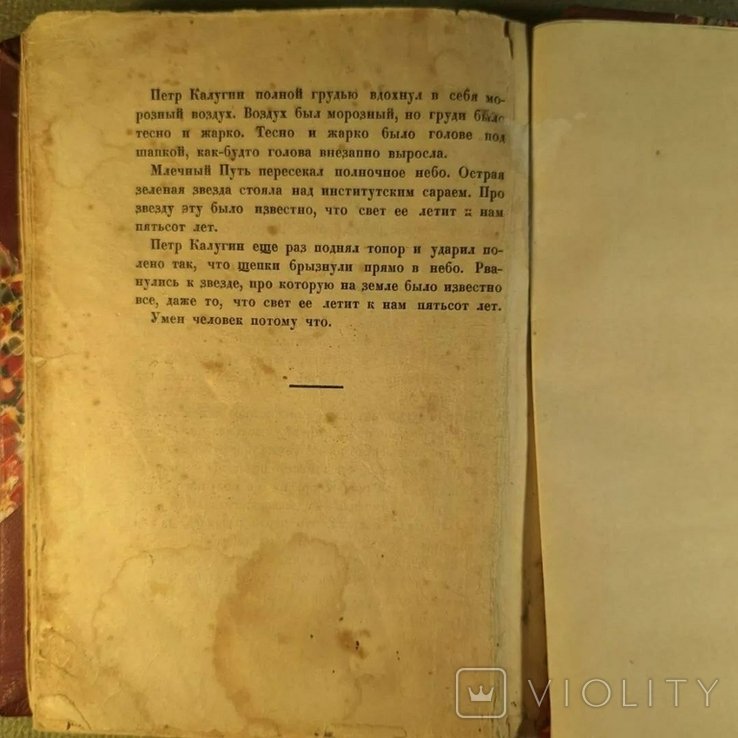 Петр Калугин полной грудью вдохнул в себя мо-
розный воздух. Воздух был морозный, но груди было
тесно и жарко. Тесно и жарко было голове под
шапкой, как-будто голова внезапно выросла.
Млечный Путь пересекал полночное небо. Острая
зеленая звезда стояла над институтским сараем. Про
звезду эту было известно, что свет ее летит к нам
пятьсот лет.
Петр Калугин еще раз поднял топор и ударил по-
лено так, что щепки брызнули прямо в небо. Рва-
нулись к звезде, про которую на земле было известно
все, даже то, что свет ее летит к нам пятьсот лет.
Умен человек потому что.
VIOLITY